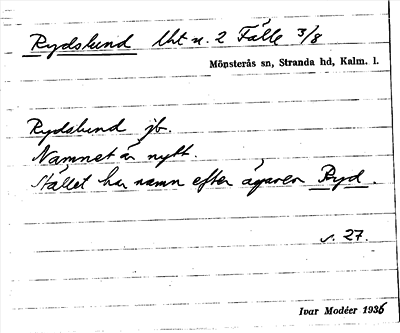 Rydslund lht u. 2 Fälle 3/8
Mönsterås sn, Stranda hd, Kalm. l.
Rydslund jb.
Namnet är nytt.
Stället har namn efter ägaren Ryd.
s. 27.
Ivar Modéer 1936